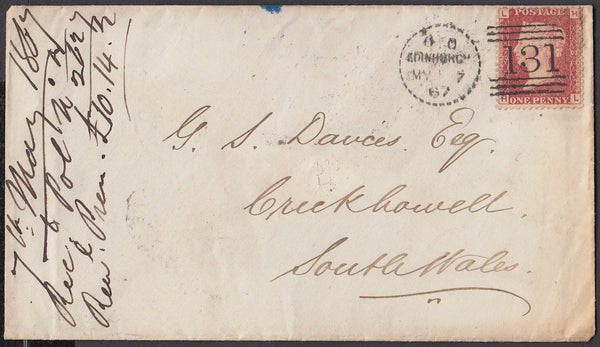 7th May 1867
Rec. & Pol. No. 2627
Ren. Prem. £10.14.2
EDINBURGH
MY 7
67
POSTAGE
131
ONE PENNY
G. S. Davies Esq.
Crickhowell.
South Wales.